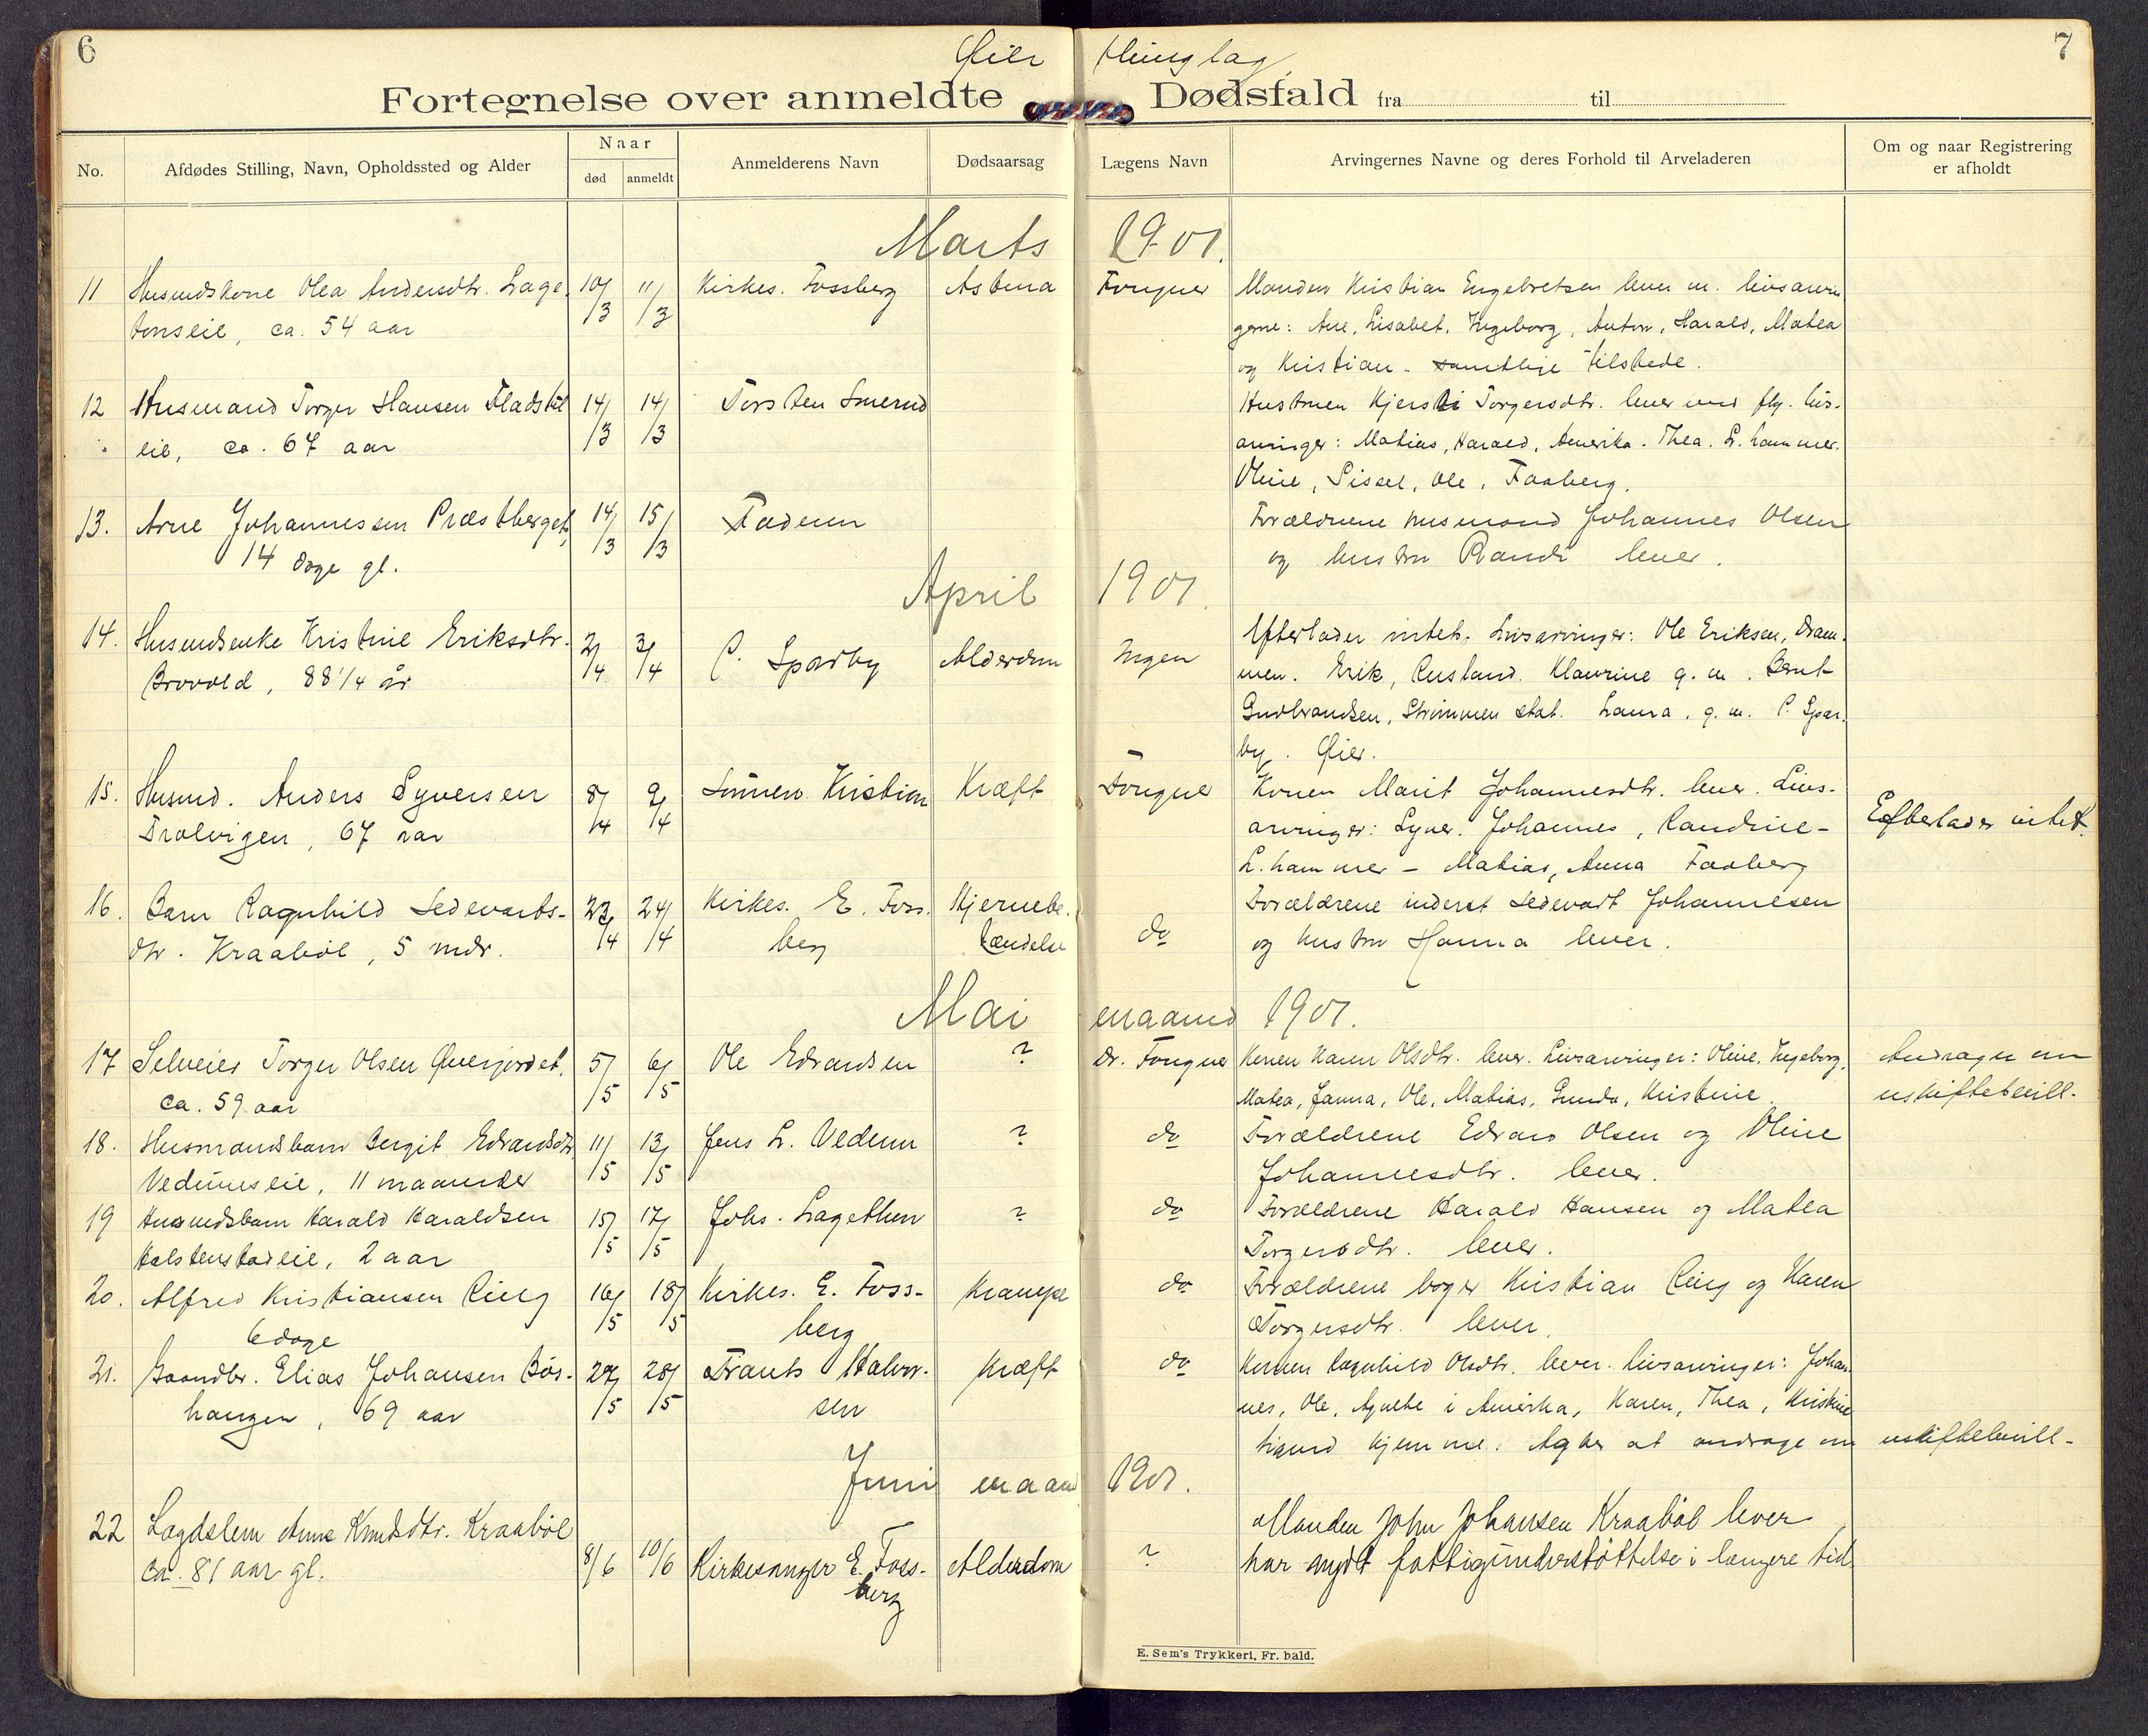 6
7
Øier thinglag
Fortegnelse over anmeldte Dødsfald fra til
No.
Afdødes Stilling, Navn, Opholdssted og Alder
Naar
død
anmeldt
Anmelderens Navn
Dødsaarsag
Lægens Navn
Arvingernes Navne og deres Forhold til Arveladeren
Om og naar Registrering
er afholdt
Marts 1901.
11 Husmdskone Olea Andersdtr. Lage- 10/3 11/3 Kirkes. Fossberg Astma Fougner Manden Kristian Engebretsen lever m. livsarvin
tonseie, ca. 54 aar
gerne: Ane, Lisabet, Ingeborg, Anton, Harald, Matea
og Kristian - samtlige tilstede.
12 Husmand Torger Hansen Fladstil 14/3 14/3 Torsten Smerud Hustruen Kjersti Torgersdtr. lever med flg. livs-
eie, ca. 67 aar
arvinger: Matias, Harald, Amerika. Thea. L.hammer.
Oline, Sissel, Ole, Faaberg.
13. Arne Johannessen Præstberget, 14/3 15/3 Faderen Forældrene husmand Johannes Olsen
14 dage gl.
og hustru Randi lever.
April 1901.
14. Husmdsenke Kristine Eriksdtr. 2/4 3/4 P. Sparby Alderdom Ingen Efterlader intet. Livsarvinger: Ole Eriksen, Dram-
Brovold, 88 1/4 år
men. Erik, Rusland. Klaurine g. m. Bent
Gudbrandsen, Strømmen stat. Laura, g. m. P. Spar-
by. Øier.
15. Husmd. Anders Syversen 8/4 9/4 Sønnen Kristian Kræft Fougner Konen Marit Johannesdtr. lever. Livs-
Trolvigen, 67 aar
arvinger: Syver, Johannes, Randine - Efterlader intet.
L.hammer - Matias, Anna Faaberg
16. Barn Ragnhild Sedevarts- 23/4 24/4 Kirkes. E. Foss- Hjernebe- do Forældrene inderst Sedevart Johannesen
dtr. Kraabøl, 5 mdr. berg tændelse og hustru Hanna lever.
Mai maaned 1901.
17 Selveier Torger Olsen Øverjordet, 5/5 6/5 Ole Edvardsen ? Dr. Fougner Konen Karen Olsdtr. lever. Livsarvinger: Oline, Ingeborg, Andrager om
ca. 59 aar
Matea, Janna, Ole, Matias, Gunda, Kristine. uskiftebevill-
18. Husmandsbarn Bergit Edvardsdtr. 11/5 13/5 Jens L. Vedum ? do Forældrene Edvard Olsen og Oline
Vedumseie, 11 maaneder
Johannesdtr. lever.
19 Husmdsbarn Harald Haraldsen 15/5 17/5 Johs. Lagethon ? do Forældrene Harald Hansen og Matea
Halstenstadeie, 2 aar
Torgersdtr. lever.
20. Alfred Kristiansen Rieg 16/5 18/5 Kirkes. E. Foss- Krampe do Forældrene bøger Kristian Rieg og Karen
6 dage berg Torgersdtr. lever.
21. Gaardbr. Elias Johansen Bøs- 27/5 28/5 Frants Halvor- Kræft do Konen Ragnhild Olsdtr. lever. Livsarvinger: Johan-
haugen, 69 aar sen nes, Ole, Agnethe i Amerika, Karen, Thea, Kristine
Sigurd hjemme. Agter at andrage om uskiftebevill-
Juni maaned 1901.
22 Lægdslem Anne Knudsdtr. Kraabøl 8/6 10/6 Kirkesanger E. Foss- Alderdom ? Manden John Johansen Kraabøl lever
ca. 81 aar gl. berg har nydt fattigunderstøttelse i længere tid
E. Sem's Trykkeri, Fr. hald.